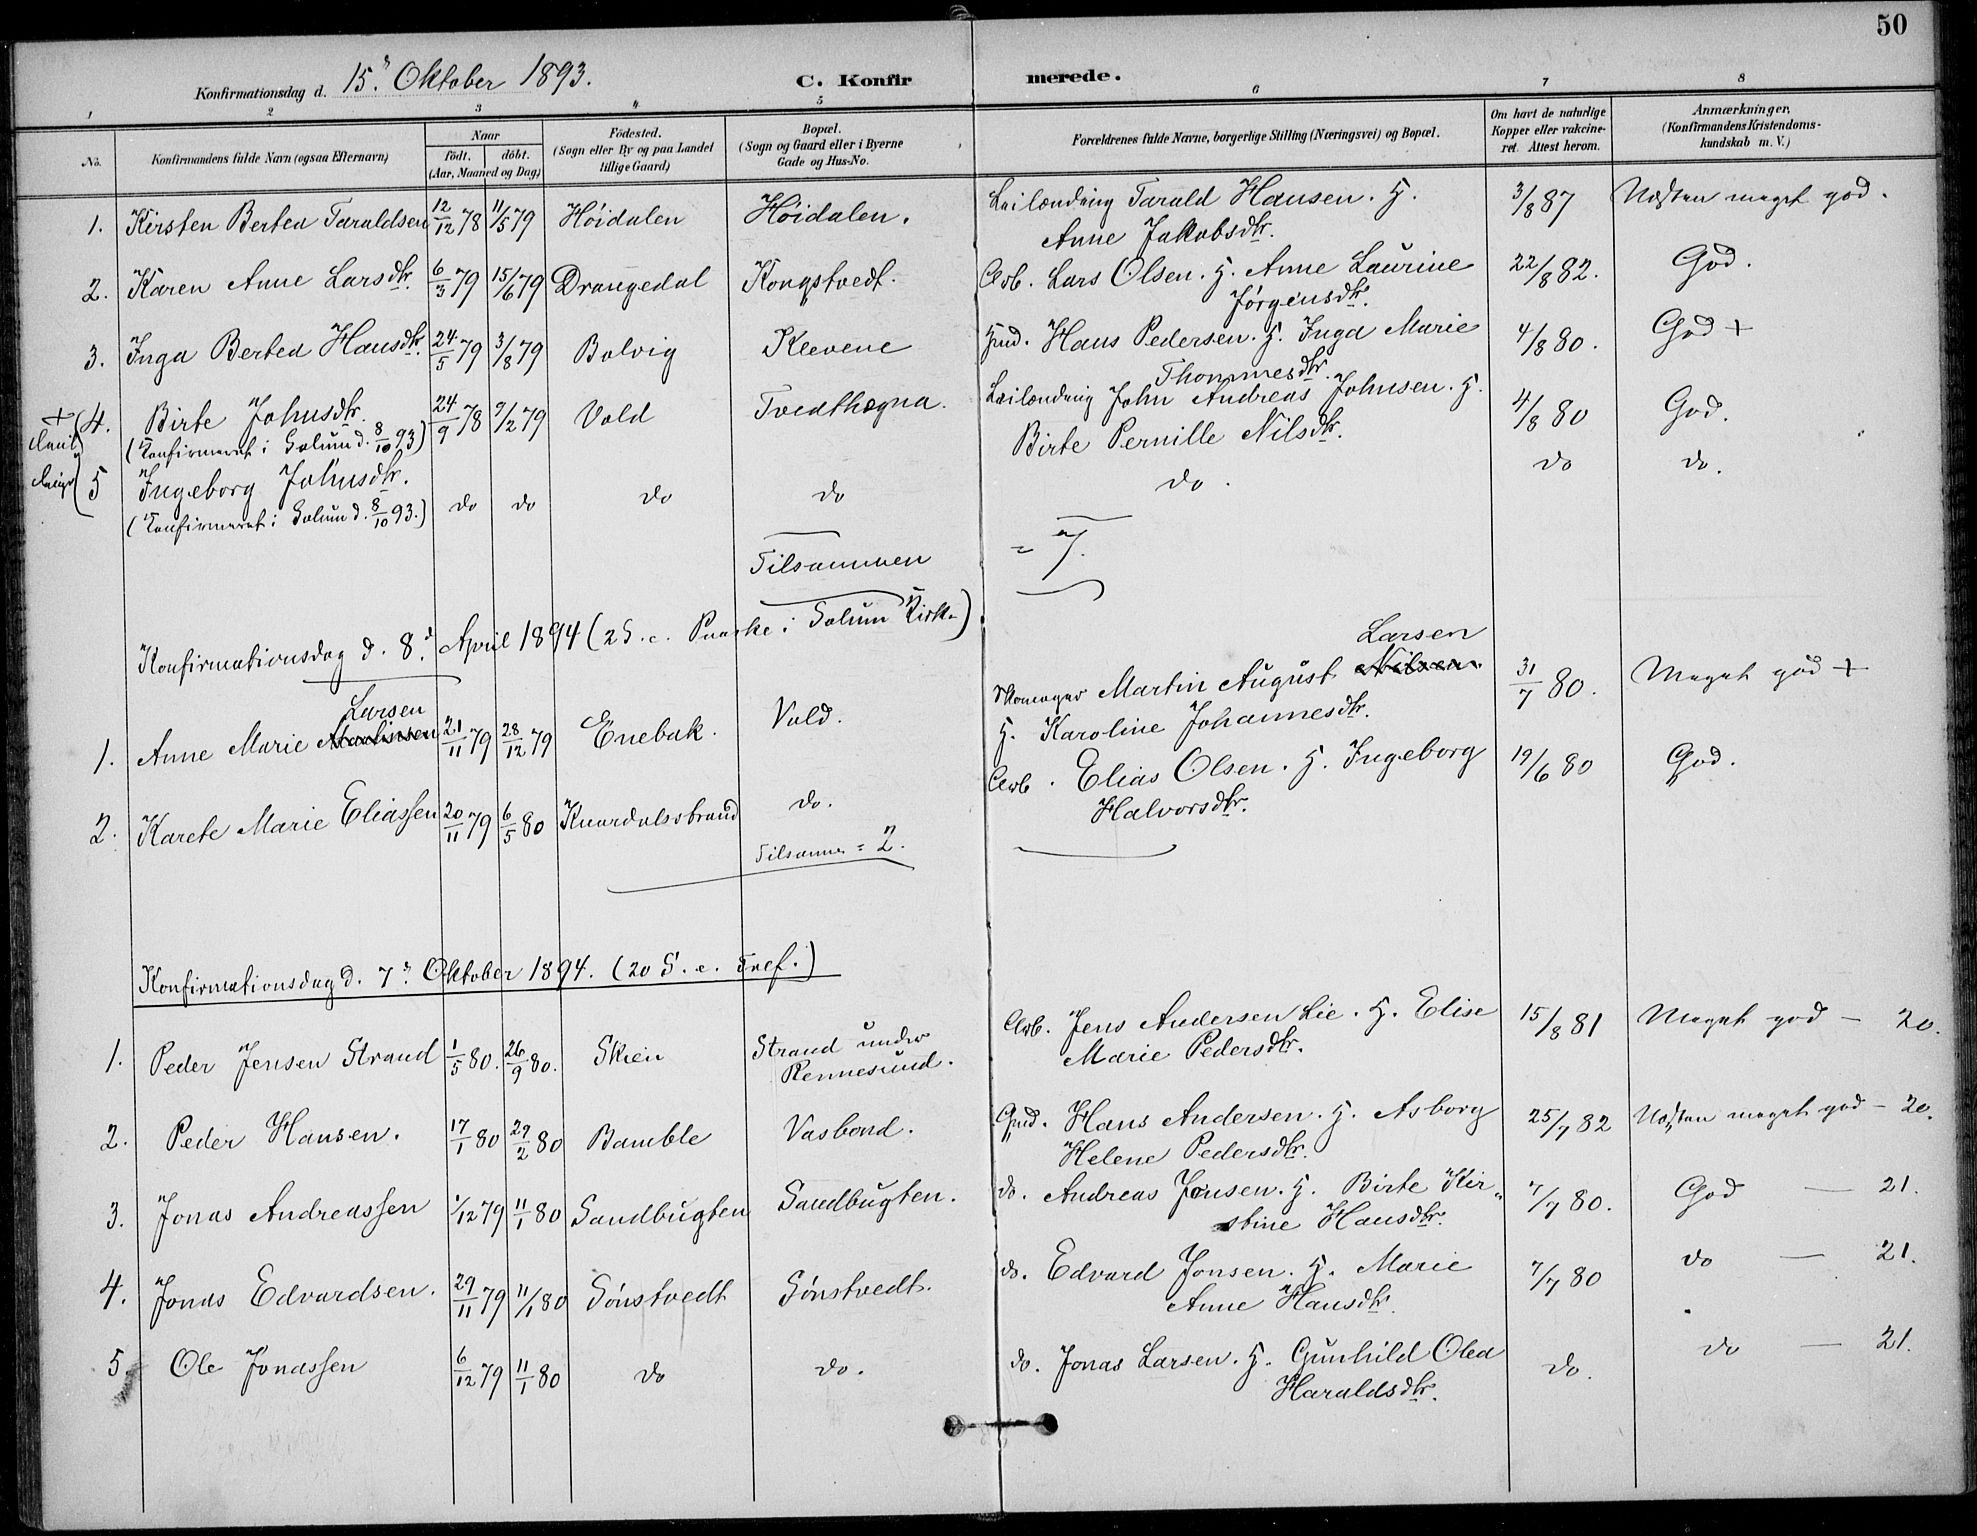 50
Konfirmationsdag d. 15. Oktober 1893. C. Konfirmerede.
1 2 3 4 5 6 7 8
No.
Konfirmandens fulde Navn (ogsaa Efternavn)
Naar
født. døbt.
(Aar, Maaned og Dag)
Födested.
(Sogn eller By og paa Landet
tillige Gaard)
Bopæl.
(Sogn og Gaard eller i Byerne
Gade og Hus-No.
Forældrenes fulde Navne, borgerlige Stilling (Næringsvei) og Bopæl.
Om havt de naturlige
Kopper eller vakcine-
ret. Attest herom.
Anmærkninger,
(Konfirmandens Kristendoms-
kundskab m. V.)
1. Kirsten Bertea Taraldsen 12/12 78 11/5 79 Höidalen Höidalen. Leilænding Tarald Hansen. H. 3/8 87 Næsten meget god.
Anne Jakobsdtr.
2. Karen Anne Larsdtr. 6/3 79 15/6 79 Drangedal Kongstvedt. Arb. Lars Olsen. H. Anne Laurine 22/8 82. God.
Jørgensdtr.
3. Inga Bertea Hansdtr. 24/5 79 3/8 79 Bolvig Klevene Gmd. Hans Pedersen. H. Inga Marie 4/8 80. God +
Thommesdtr.
+ 4. Birte Johnsdtr. 24/9 78 9/2 79 Vold Tvedthægna. Leilænding John Andreas Johnsen. H. 4/8 80 God.
(Konfirmeret i Solum d. 8/10 93) Birte Pernille Nilsdtr.
5 Ingeborg Johnsdtr. do do do do do. do do.
(Konfirmeret i Solum d. 8/10 93.)
Tilsammen = 7.
Konfirmationsdag d. 8. April 1894 (2 S. e. Paaske i Solum Kirke)
Larsen Larsen
1. Anne Marie 21/11 79 28/12 79 Enebak. Vold. Skomager Martin August Nilsen 31/7 80. Meget god +
H. Karoline Johannesdtr.
2. Karete Marie Eliassen 20/11 79 6/5 80 Knardalsstrand do. Arb. Elias Olsen. H. Ingeborg 19/6 80 God.
Halvorsdtr.
Tilsammen = 2.
Konfirmationsdag d. 7. Oktober 1894. (20 S. e. Tref.)
1. Peder Jensen Strand 1/5 80. 26/9 80. Skien Strand under Arb. Jens Andersen Lie. H. Elise 15/8 81 Meget god — 20.
Rennesund. Marie Pedersdtr.
2. Peder Hansen. 17/1 80 29/2 80 Bamble Vasbond. Gmd. Hans Andersen. H. Asborg 25/7 82 Næsten meget god — 20.
Helene Pedersdtr.
3. Jonas Andreassen 1/12 79 11/1 80 Sandbugten Sandbugten. do. Andreas Jensen. H. Birte Kir- 7/7 80. God — 21.
stine Hansdtr.
4. Jonas Edvardsen. 29/11 79 11/1 80 Sönstvedt Sönstvedt. do. Edvard Jonsen. H. Marie 7/7 80 do — 21.
Anne Hansdtr.
5 Ole Jonassen 6/12 79 11/1 80 do do. do. Jonas Larsen. H. Gunhild Olea do. do — 21.
Haraldsdtr.